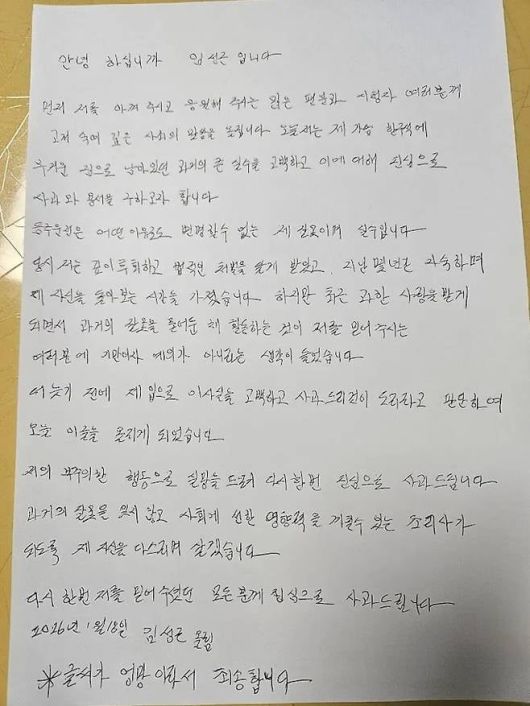 안녕 하십니까 임성근 입니다
먼저 저를 아껴 주시고 응원해 주시는 많은 팬분과 시청자 여러분께
고개 숙여 깊은 사죄의 말씀을 올립니다 오늘 저는 제 가슴 한켠에
무거운 짐으로 남아있던 과거의 큰 실수를 고백하고 이에 대해 진심으로
사과와 용서를 구하고자 합니다
음주운전은 어떤 이유로도 변명할수 없는 제 잘못이며 실수입니다
당시 저는 깊이후회하고 법적인 처벌을 달게 받았고, 지난 몇년간 자숙하며
제 자신을 돌아보는 시간을 가졌습니다 하지만 최근 과한 사랑을받게
되면서 과거의 잘못을 묻어둔 채 활동하는 것이 저를 믿어 주시는
여러분에 기만이자 예의가 아니라는 생각이 들었습니다
더 늦기 전에 제입으로 이사실을 고백하고 사과드리는것이 도리라고 판단하여
오늘 이글을 올리게 되었습니다
저의 부주의한 행동으로 실망을 드려 다시한번 진심으로 사과드립니다
과거의 잘못을 잊지 않고 사회에 선한 영향력을 끼칠수 있는 조리사가
되도록 제 자신을 다스리며 살겠습니다
다시 한번 저를 믿어주셨던 모든분께 진심으로 사과드립니다
2026년 1월18일 임성근 올림
※글씨가 엉망이라서 죄송합니다